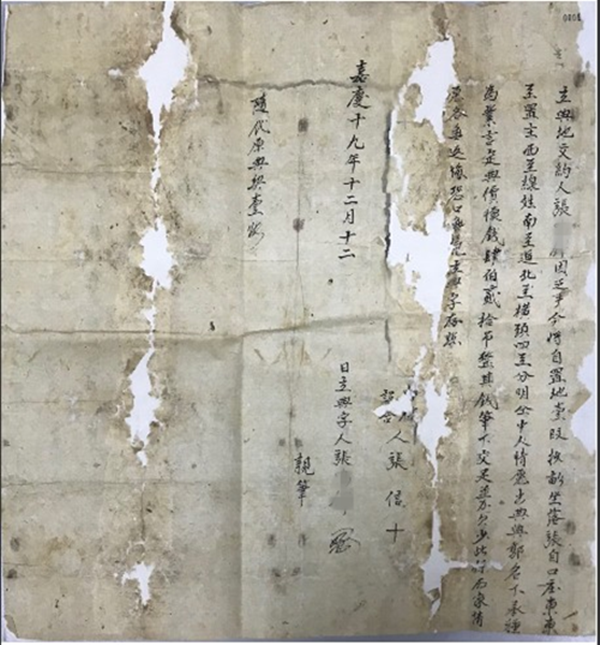 0005
立典地文約人張 因乏手今將自置地壹段 坐落張自口庄東東
至置主西至 南至道北至橫頭四至分明 中人情愿出典與郭名下承種
為業言定典價錢肆伯貳拾吊整其錢筆下交足並不欠少此 兩家情
愿各無返悔恐口無凭立 字存照
人張信十
嘉慶十九年十二月十二
日立典字人張
親筆
隨代原典契壹